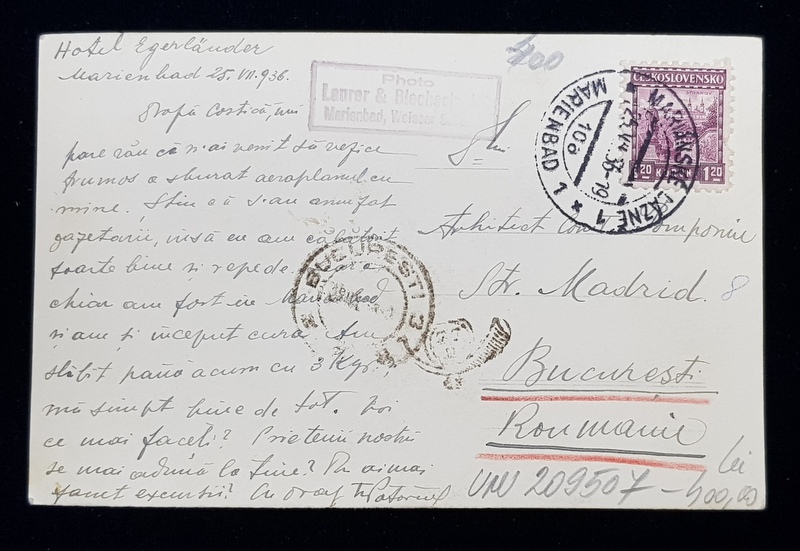 Hotel Egerländer
Marienbad 25.VII.936.
Dragă Costică, îmi
pare rău că n'ai venit să vezi ce
frumos a sburat aeroplanul cu
mine. Știu că s'au
gazetarii, însă eu am călătorit
foarte bine și repede.
chiar am fost in Marienbad
și am și început cura. Am
slăbit până acum cu 3 Kgr.,
mă simpt bine de tot. Voi
ce mai faceți? Prietenii noștri
se mai adună la tine? Ai mai
făcut excursii? Cu drag
400
Photo
Leurer &
Marienbad,
ČESKOSLOVENSKO
1.20 1.20
MARIÁNSKÉ LÁZNĚ 1
MARIENBAD 1
10a
Arhitect
Str. Madrid 8
București
Roumanie
BUCUREȘTI 3
UNU 209507 - 400,00
Lei